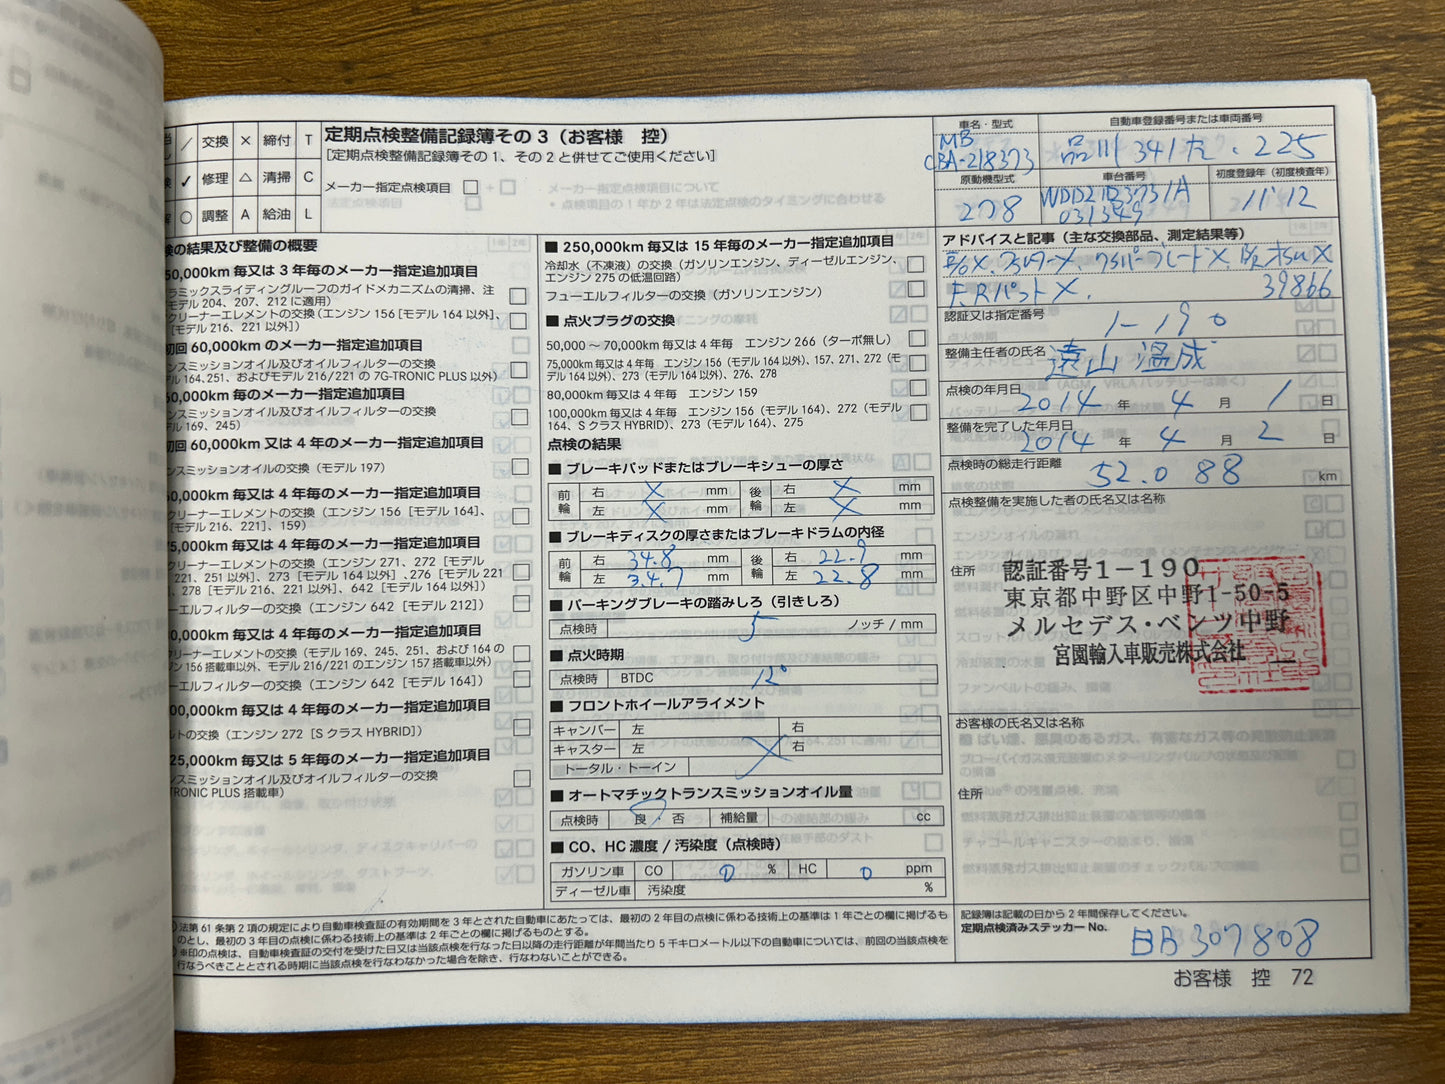 ／ 交換 × 締付 T
✓ 修理 △ 清掃 C
○ 調整 A 給油 L
定期点検整備記録簿その 3（お客様　控）
［定期点検整備記録簿その 1、その 2 と併せてご使用ください］
メーカー指定点検項目
車名・型式
MB
CBA-218373
自動車登録番号または車両番号
品川 341 た ・225
原動機型式
278
車台番号
WDD2183731A
031349
初度登録年（初度検査年）
11/12
検の結果及び整備の概要
50,000km 毎又は 3 年毎のメーカー指定追加項目
ラミックスライディングルーフのガイドメカニズムの清掃、注
モデル 204、207、212 に適用）
クリーナーエレメントの交換（エンジン 156［モデル 164 以外］、
［モデル 216、221 以外］）
初回 60,000km のメーカー指定追加項目
ンスミッションオイル及びオイルフィルターの交換
デル 164、251、およびモデル 216/221 の 7G-TRONIC PLUS 以外）
60,000km 毎のメーカー指定追加項目
ンスミッションオイル及びオイルフィルターの交換
169、245）
初回 60,000km 又は 4 年のメーカー指定追加項目
ンスミッションオイルの交換（モデル 197）
60,000km 毎又は 4 年毎のメーカー指定追加項目
クリーナーエレメントの交換（エンジン 156［モデル 164］、
［モデル 216、221］、159）
75,000km 毎又は 4 年毎のメーカー指定追加項目
クリーナーエレメントの交換（エンジン 271、272［モデル
221、251 以外］、273［モデル 164 以外］、276［モデル 221
、278［モデル 216、221 以外］、642［モデル 164 以外］）
ーエルフィルターの交換（エンジン 642［モデル 212］）
0,000km 毎又は 4 年毎のメーカー指定追加項目
クリーナーエレメントの交換（モデル 169、245、251、および 164 の
ン 156 搭載車以外、モデル 216/221 のエンジン 157 搭載車以外）
ーエルフィルターの交換（エンジン 642［モデル 164］）
00,000km 毎又は 4 年毎のメーカー指定追加項目
ルトの交換（エンジン 272［S クラス HYBRID］）
25,000km 毎又は 5 年毎のメーカー指定追加項目
ンスミッションオイル及びオイルフィルターの交換
TRONIC PLUS 搭載車）
■ 250,000km 毎又は 15 年毎のメーカー指定追加項目
冷却水（不凍液）の交換（ガソリンエンジン、ディーゼルエンジン、
エンジン 275 の低温回路）
フューエルフィルターの交換（ガソリンエンジン）
■ 点火プラグの交換
50,000 ～ 70,000km 毎又は 4 年毎　エンジン 266（ターボ無し）
75,000km 毎又は 4 年毎　エンジン 156（モデル 164 以外）、157、271、272（モ
デル 164 以外）、273（モデル 164 以外）、276、278
80,000km 毎又は 4 年毎　エンジン 159
100,000km 毎又は 4 年毎　エンジン 156（モデル 164）、272（モデル
164、S クラス HYBRID）、273（モデル 164）、275
点検の結果
■ ブレーキパッドまたはブレーキシューの厚さ
前輪 右 × mm 後輪 右 × mm
左 × mm 左 × mm
■ ブレーキディスクの厚さまたはブレーキドラムの内径
前輪 右 34.8 mm 後輪 右 22.9 mm
左 34.7 mm 左 22.8 mm
■ パーキングブレーキの踏みしろ（引きしろ）
点検時 5 ノッチ / mm
■ 点火時期
点検時 BTDC 12°
■ フロントホイールアライメント
キャンバー 左 右
キャスター 左 右
トータル・トーイン
■ オートマチックトランスミッションオイル量
点検時 良・否 補給量 cc
■ CO、HC 濃度 / 汚染度（点検時）
ガソリン車 CO 0 % HC 0 ppm
ディーゼル車 汚染度 %
アドバイスと記事（主な交換部品、測定結果等）
39866
認証又は指定番号
1-190
整備主任者の氏名
遠山 温成
点検の年月日
2014 年 4 月 1 日
整備を完了した年月日
2014 年 4 月 2 日
点検時の総走行距離
52.088 km
点検整備を実施した者の氏名又は名称
住所
認証番号１－１９０
東京都中野区中野1-50-5
メルセデス・ベンツ中野
宮園輸入車販売株式会社
お客様の氏名又は名称
住所
法第 61 条第 2 項の規定により自動車検査証の有効期間を 3 年とされた自動車にあたっては、最初の 2 年目の点検に係わる技術上の基準は 1 年ごとの欄に掲げるも
のとし、最初の 3 年目の点検に係わる技術上の基準は 2 年ごとの欄に掲げるものとする。
※印の点検は、自動車検査証の交付を受けた日又は当該点検を行なった日以降の走行距離が年間当たり 5 千キロメートル以下の自動車については、前回の当該点検を
行なうべきこととされる時期に当該点検を行なわなかった場合を除き、行なわないことができる。
記録簿は記載の日から 2 年間保存してください。
定期点検済みステッカー No.
BB307808
お客様　控　72